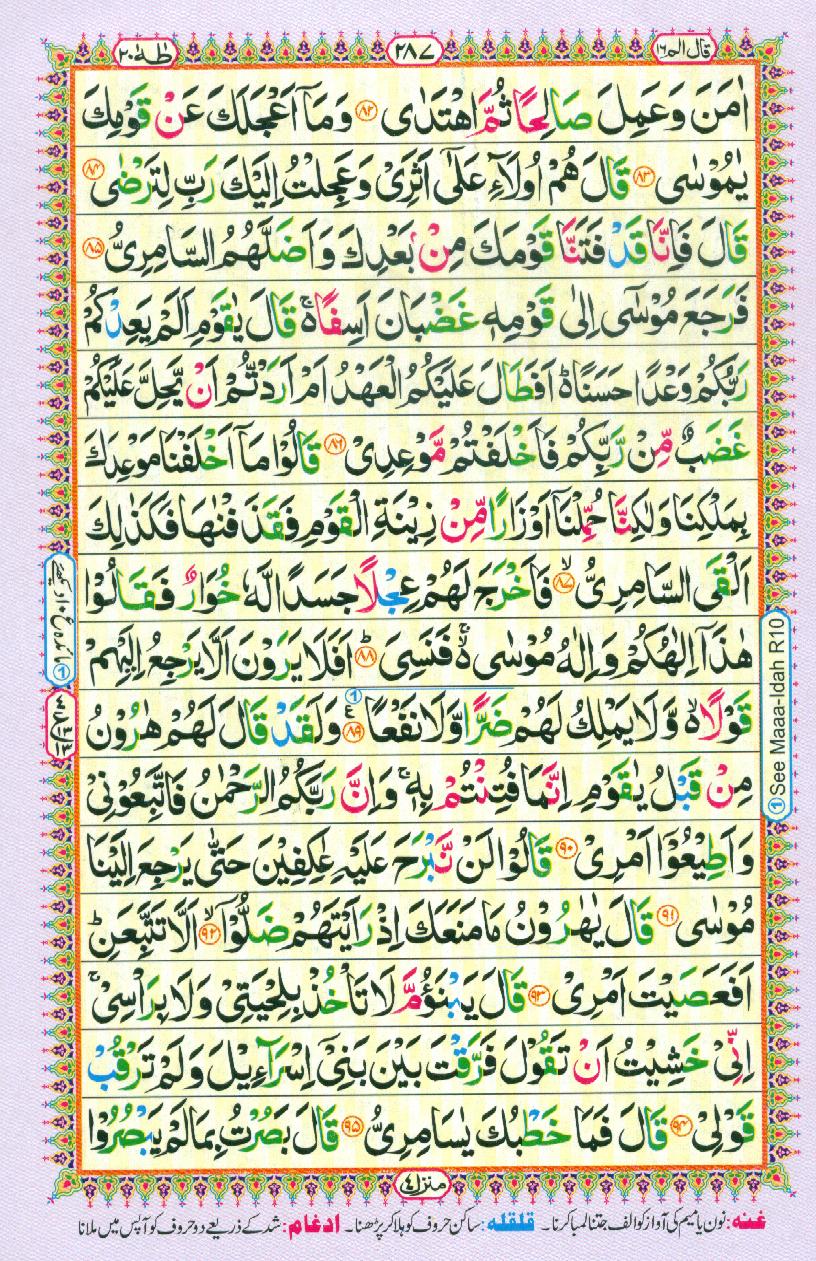 قال الم ١٦
٢٨٧
طٰهٰ ٢٠
اٰمَنَ وَعَمِلَ صَالِحًا ثُمَّ اهْتَدٰى ﴿۸۲﴾ وَمَآ اَعْجَلَكَ عَنْ قَوْمِكَ
يٰمُوْسٰى ﴿۸۳﴾ قَالَ هُمْ اُولَآءِ عَلٰٓى اَثَرِىْ وَعَجِلْتُ اِلَيْكَ رَبِّ لِتَرْضٰى ﴿۸۴﴾
قَالَ فَاِنَّا قَدْ فَتَنَّا قَوْمَكَ مِنْۢ بَعْدِكَ وَاَضَلَّهُمُ السَّامِرِىُّ ﴿۸۵﴾
فَرَجَعَ مُوْسٰٓى اِلٰى قَوْمِهٖ غَضْبَانَ اَسِفًا ۚ قَالَ يٰقَوْمِ اَلَمْ يَعِدْكُمْ
رَبُّكُمْ وَعْدًا حَسَنًا ؕ اَفَطَالَ عَلَيْكُمُ الْعَهْدُ اَمْ اَرَدْتُّمْ اَنْ يَّحِلَّ عَلَيْكُمْ
غَضَبٌ مِّنْ رَّبِّكُمْ فَاَخْلَفْتُمْ مَّوْعِدِىْ ﴿۸۶﴾ قَالُوْا مَآ اَخْلَفْنَا مَوْعِدَكَ
بِمَلْكِنَا وَلٰكِنَّا حُمِّلْنَآ اَوْزَارًا مِّنْ زِيْنَةِ الْقَوْمِ فَقَذَفْنٰهَا فَكَذٰلِكَ
اَلْقَى السَّامِرِىُّ ﴿۸۷﴾ ۙ فَاَخْرَجَ لَهُمْ عِجْلًا جَسَدًا لَّهٗ خُوَارٌ فَقَالُوْا
هٰذَآ اِلٰهُكُمْ وَاِلٰهُ مُوْسٰى ۚ فَنَسِىَ ﴿۸۸﴾ ؕ اَفَلَا يَرَوْنَ اَلَّا يَرْجِعُ اِلَيْهِمْ
قَوْلًا ۙ وَّلَا يَمْلِكُ لَهُمْ ضَرًّا وَّلَا نَفْعًا ﴿۸۹﴾ ع ① وَلَقَدْ قَالَ لَهُمْ هٰرُوْنُ
مِنْ قَبْلُ يٰقَوْمِ اِنَّمَا فُتِنْتُمْ بِهٖ ۚ وَاِنَّ رَبَّكُمُ الرَّحْمٰنُ فَاتَّبِعُوْنِىْ
وَاَطِيْعُوْٓا اَمْرِىْ ﴿۹۰﴾ قَالُوْا لَنْ نَّبْرَحَ عَلَيْهِ عٰكِفِيْنَ حَتّٰى يَرْجِعَ اِلَيْنَا
مُوْسٰى ﴿۹۱﴾ قَالَ يٰهٰرُوْنُ مَا مَنَعَكَ اِذْ رَاَيْتَهُمْ ضَلُّوْٓا ﴿۹۲﴾ ۙ اَلَّا تَتَّبِعَنِ ؕ
اَفَعَصَيْتَ اَمْرِىْ ﴿۹۳﴾ قَالَ يَبْنَؤُمَّ لَا تَاْخُذْ بِلِحْيَتِىْ وَلَا بِرَاْسِىْ ۚ
اِنِّىْ خَشِيْتُ اَنْ تَقُوْلَ فَرَّقْتَ بَيْنَ بَنِىْٓ اِسْرَآءِيْلَ وَلَمْ تَرْقُبْ
قَوْلِىْ ﴿۹۴﴾ قَالَ فَمَا خَطْبُكَ يٰسَامِرِىُّ ﴿۹۵﴾ قَالَ بَصُرْتُ بِمَا لَمْ يَبْصُرُوْا
① See Maaa-Idah R10
منزل ۴
غنه: نون یا میم کی آواز کو الف جتنا لمبا کرنا۔ قلقله: ساکن حروف کو ہلا کر پڑھنا۔ ادغام: شد کے ذریعے دو حروف کو آپس میں ملانا